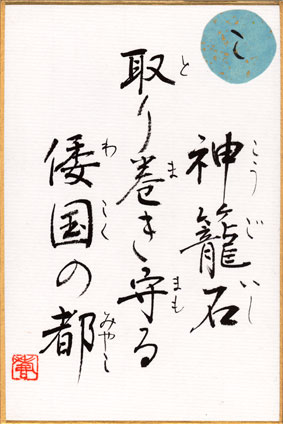 こ
神籠石
こうごいし
取り巻き守る
と ま まも
倭国の都
わこく みやこ